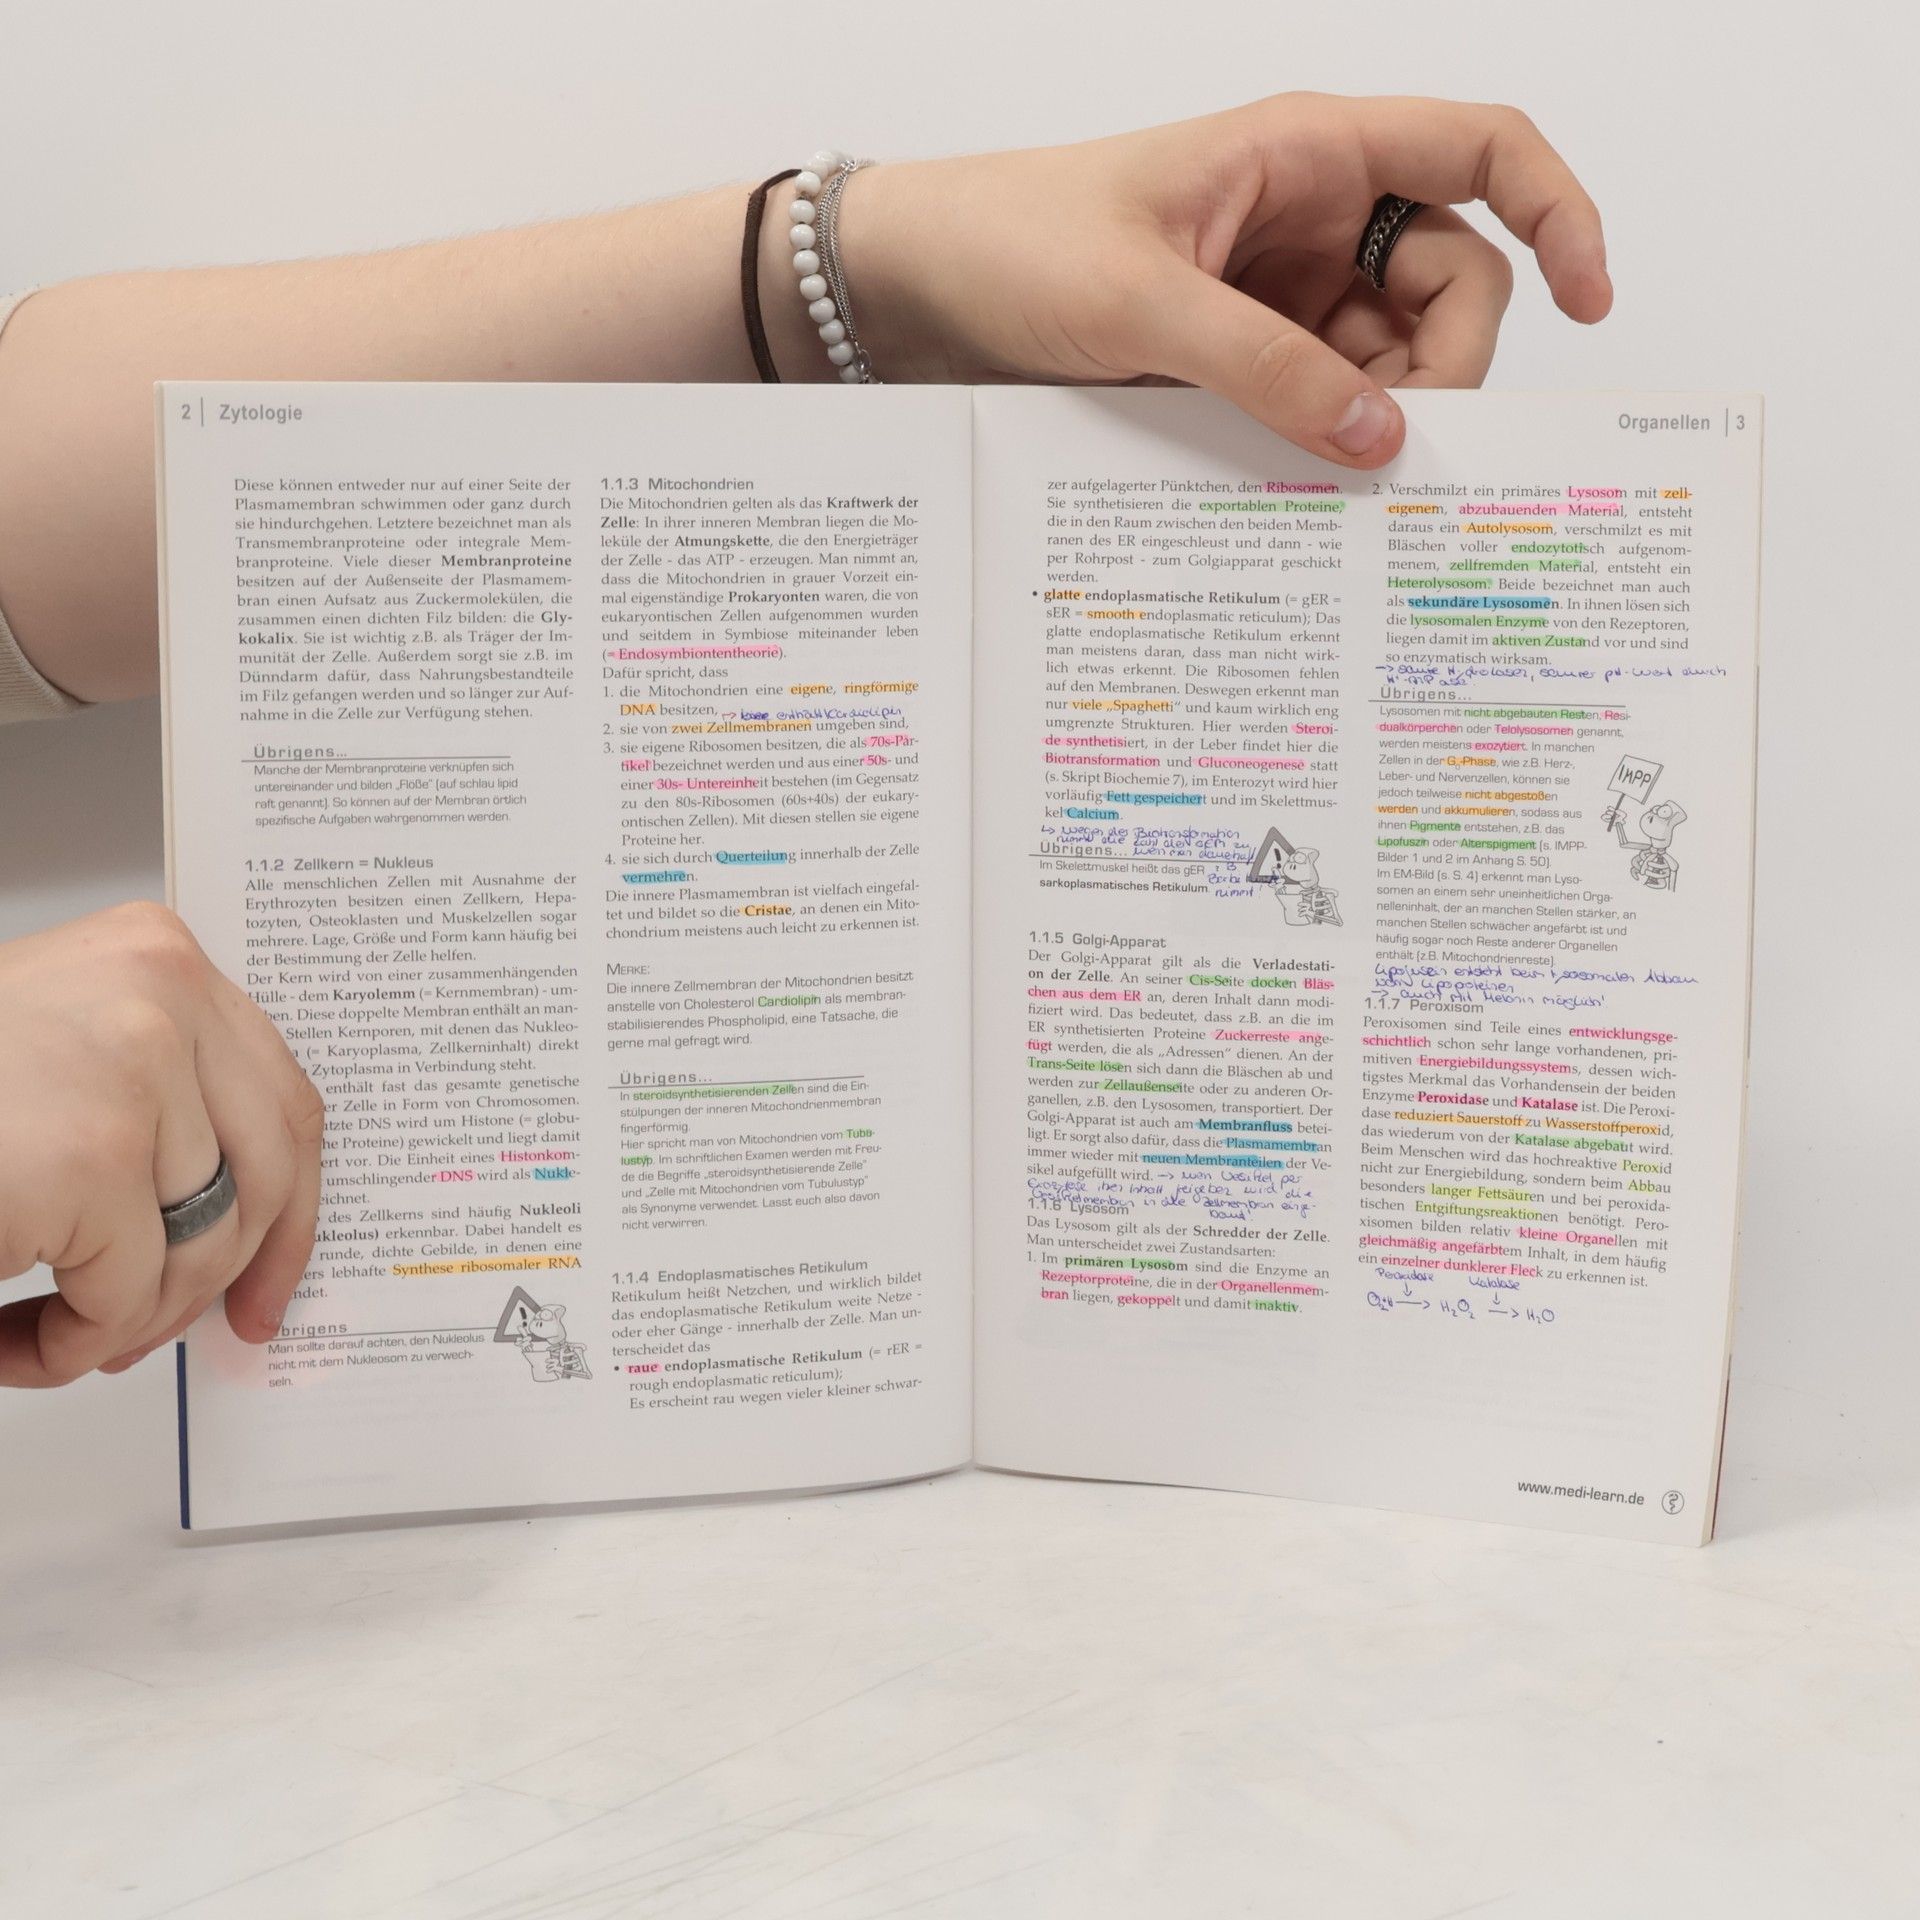 2 | Zytologie
Diese können entweder nur auf einer Seite der
Plasmamembran schwimmen oder ganz durch
sie hindurchgehen. Letztere bezeichnet man als
Transmembranproteine oder integrale Mem-
branproteine. Viele dieser Membranproteine
besitzen auf der Außenseite der Plasmamem-
bran einen Aufsatz aus Zuckermolekülen, die
zusammen einen dichten Filz bilden: die Gly-
kokalix. Sie ist wichtig z.B. als Träger der Im-
munität der Zelle. Außerdem sorgt sie z.B. im
Dünndarm dafür, dass Nahrungsbestandteile
im Filz gefangen werden und so länger zur Auf-
nahme in die Zelle zur Verfügung stehen.
Übrigens...
Manche der Membranproteine verknüpfen sich
untereinander und bilden „Flöße" (auf schlau lipid
raft genannt). So können auf der Membran örtlich
spezifische Aufgaben wahrgenommen werden.
1.1.2 Zellkern = Nukleus
Alle menschlichen Zellen mit Ausnahme der
Erythrozyten besitzen einen Zellkern, Hepa-
tozyten, Osteoklasten und Muskelzellen sogar
mehrere. Lage, Größe und Form kann häufig bei
der Bestimmung der Zelle helfen.
Der Kern wird von einer zusammenhängenden
Hülle - dem Karyolemm (= Kernmembran) - um-
ben. Diese doppelte Membran enthält an man-
Stellen Kernporen, mit denen das Nukleo-
(= Karyoplasma, Zellkerninhalt) direkt
Zytoplasma in Verbindung steht.
enthält fast das gesamte genetische
er Zelle in Form von Chromosomen.
tzte DNS wird um Histone (= globu-
he Proteine) gewickelt und liegt damit
ert vor. Die Einheit eines Histonkom-
umschlingender DNS wird als Nukle-
eichnet.
des Zellkerns sind häufig Nukleoli
ukleolus) erkennbar. Dabei handelt es
runde, dichte Gebilde, in denen eine
ers lebhafte Synthese ribosomaler RNA
ndet.
brigens
Man sollte darauf achten, den Nukleolus
nicht mit dem Nukleosom zu verwech-
seln.
1.1.3 Mitochondrien
Die Mitochondrien gelten als das Kraftwerk der
Zelle: In ihrer inneren Membran liegen die Mo-
leküle der Atmungskette, die den Energieträger
der Zelle - das ATP - erzeugen. Man nimmt an,
dass die Mitochondrien in grauer Vorzeit ein-
mal eigenständige Prokaryonten waren, die von
eukaryontischen Zellen aufgenommen wurden
und seitdem in Symbiose miteinander leben
(= Endosymbiontentheorie).
Dafür spricht, dass
1. die Mitochondrien eine eigene, ringförmige
DNA besitzen,
→ enthält Cardiolipin
2. sie von zwei Zellmembranen umgeben sind,
3. sie eigene Ribosomen besitzen, die als 70s-Par-
tikel bezeichnet werden und aus einer 50s- und
einer 30s- Untereinheit bestehen (im Gegensatz
zu den 80s-Ribosomen (60s+40s) der eukary-
ontischen Zellen). Mit diesen stellen sie eigene
Proteine her.
4. sie sich durch Querteilung innerhalb der Zelle
vermehren.
Die innere Plasmamembran ist vielfach eingefal-
tet und bildet so die Cristae, an denen ein Mito-
chondrium meistens auch leicht zu erkennen ist.
MERKE:
Die innere Zellmembran der Mitochondrien besitzt
anstelle von Cholesterol Cardiolipin als membran-
stabilisierendes Phospholipid, eine Tatsache, die
gerne mal gefragt wird.
Übrigens...
In steroidsynthetisierenden Zellen sind die Ein-
stülpungen der inneren Mitochondrienmembran
fingerförmig.
Hier spricht man von Mitochondrien vom Tubu-
lustyp. Im schriftlichen Examen werden mit Freu-
de die Begriffe „steroidsynthetisierende Zelle"
und „Zelle mit Mitochondrien vom Tubulustyp"
als Synonyme verwendet. Lasst euch also davon
nicht verwirren.
1.1.4 Endoplasmatisches Retikulum
Retikulum heißt Netzchen, und wirklich bildet
das endoplasmatische Retikulum weite Netze -
oder eher Gänge - innerhalb der Zelle. Man un-
terscheidet das
• raue endoplasmatische Retikulum (= rER =
rough endoplasmatic reticulum);
Es erscheint rau wegen vieler kleiner schwar-
Organellen | 3
zer aufgelagerter Pünktchen, den Ribosomen.
Sie synthetisieren die exportablen Proteine,
die in den Raum zwischen den beiden Memb-
ranen des ER eingeschleust und dann - wie
per Rohrpost - zum Golgiapparat geschickt
werden.
• glatte endoplasmatische Retikulum (= gER =
sER = smooth endoplasmatic reticulum); Das
glatte endoplasmatische Retikulum erkennt
man meistens daran, dass man nicht wirk-
lich etwas erkennt. Die Ribosomen fehlen
auf den Membranen. Deswegen erkennt man
nur viele „Spaghetti" und kaum wirklich eng
umgrenzte Strukturen. Hier werden Steroi-
de synthetisiert, in der Leber findet hier die
Biotransformation und Gluconeogenese statt
(s. Skript Biochemie 7), im Enterozyt wird hier
vorläufig Fett gespeichert und im Skelettmus-
kel Calcium.
↳ wegen der Biotransformation
nimmt die Zahl des gER zu
Übrigens... wenn man dauerhaft
Im Skelettmuskel heißt das gER z.B.
sarkoplasmatisches Retikulum. nimmt!
1.1.5 Golgi-Apparat
Der Golgi-Apparat gilt als die Verladestati-
on der Zelle. An seiner Cis-Seite docken Bläs-
chen aus dem ER an, deren Inhalt dann modi-
fiziert wird. Das bedeutet, dass z.B. an die im
ER synthetisierten Proteine Zuckerreste ange-
fügt werden, die als „Adressen" dienen. An der
Trans-Seite lösen sich dann die Bläschen ab und
werden zur Zellaußenseite oder zu anderen Or-
ganellen, z.B. den Lysosomen, transportiert. Der
Golgi-Apparat ist auch am Membranfluss betei-
ligt. Er sorgt also dafür, dass die Plasmamembran
immer wieder mit neuen Membranteilen der Ve-
sikel aufgefüllt wird. → wenn Vesikel per
Exozytose ihren Inhalt freigeben wird die
Vesikelmembran in die Zellmembran einge-
baut!
1.1.6 Lysosom
Das Lysosom gilt als der Schredder der Zelle.
Man unterscheidet zwei Zustandsarten:
1. Im primären Lysosom sind die Enzyme an
Rezeptorproteine, die in der Organellenmem-
bran liegen, gekoppelt und damit inaktiv.
2. Verschmilzt ein primäres Lysosom mit zell-
eigenem, abzubauenden Material, entsteht
daraus ein Autolysosom, verschmilzt es mit
Bläschen voller endozytotisch aufgenom-
menem, zellfremden Material, entsteht ein
Heterolysosom. Beide bezeichnet man auch
als sekundäre Lysosomen. In ihnen lösen sich
die lysosomalen Enzyme von den Rezeptoren,
liegen damit im aktiven Zustand vor und sind
so enzymatisch wirksam.
→ saure Hydrolasen, saurer pH-Wert durch
H⁺-ATPase
Übrigens...
Lysosomen mit nicht abgebauten Resten, Resi-
dualkörperchen oder Telolysosomen genannt,
werden meistens exozytiert. In manchen
Zellen in der G₀-Phase, wie z.B. Herz-,
Leber- und Nervenzellen, können sie
jedoch teilweise nicht abgestoßen
werden und akkumulieren, sodass aus
ihnen Pigmente entstehen, z.B. das
Lipofuszin oder Alterspigment (s. IMPP-
Bilder 1 und 2 im Anhang S. 50).
Im EM-Bild (s. S. 4) erkennt man Lyso-
somen an einem sehr uneinheitlichen Orga-
nelleninhalt, der an manchen Stellen stärker, an
manchen Stellen schwächer angefärbt ist und
häufig sogar noch Reste anderer Organellen
enthält (z.B. Mitochondrienreste).
IMPP
Lipofuszin entsteht beim lysosomalen Abbau
von Lipoproteinen
→ auch mit Melanin möglich!
1.1.7 Peroxisom
Peroxisomen sind Teile eines entwicklungsge-
schichtlich schon sehr lange vorhandenen, pri-
mitiven Energiebildungssystems, dessen wich-
tigstes Merkmal das Vorhandensein der beiden
Enzyme Peroxidase und Katalase ist. Die Peroxi-
dase reduziert Sauerstoff zu Wasserstoffperoxid,
das wiederum von der Katalase abgebaut wird.
Beim Menschen wird das hochreaktive Peroxid
nicht zur Energiebildung, sondern beim Abbau
besonders langer Fettsäuren und bei peroxida-
tischen Entgiftungsreaktionen benötigt. Pero-
xisomen bilden relativ kleine Organellen mit
gleichmäßig angefärbtem Inhalt, in dem häufig
ein einzelner dunklerer Fleck zu erkennen ist.
Peroxidase Katalase
→ H₂O₂ → H₂O
www.medi-learn.de